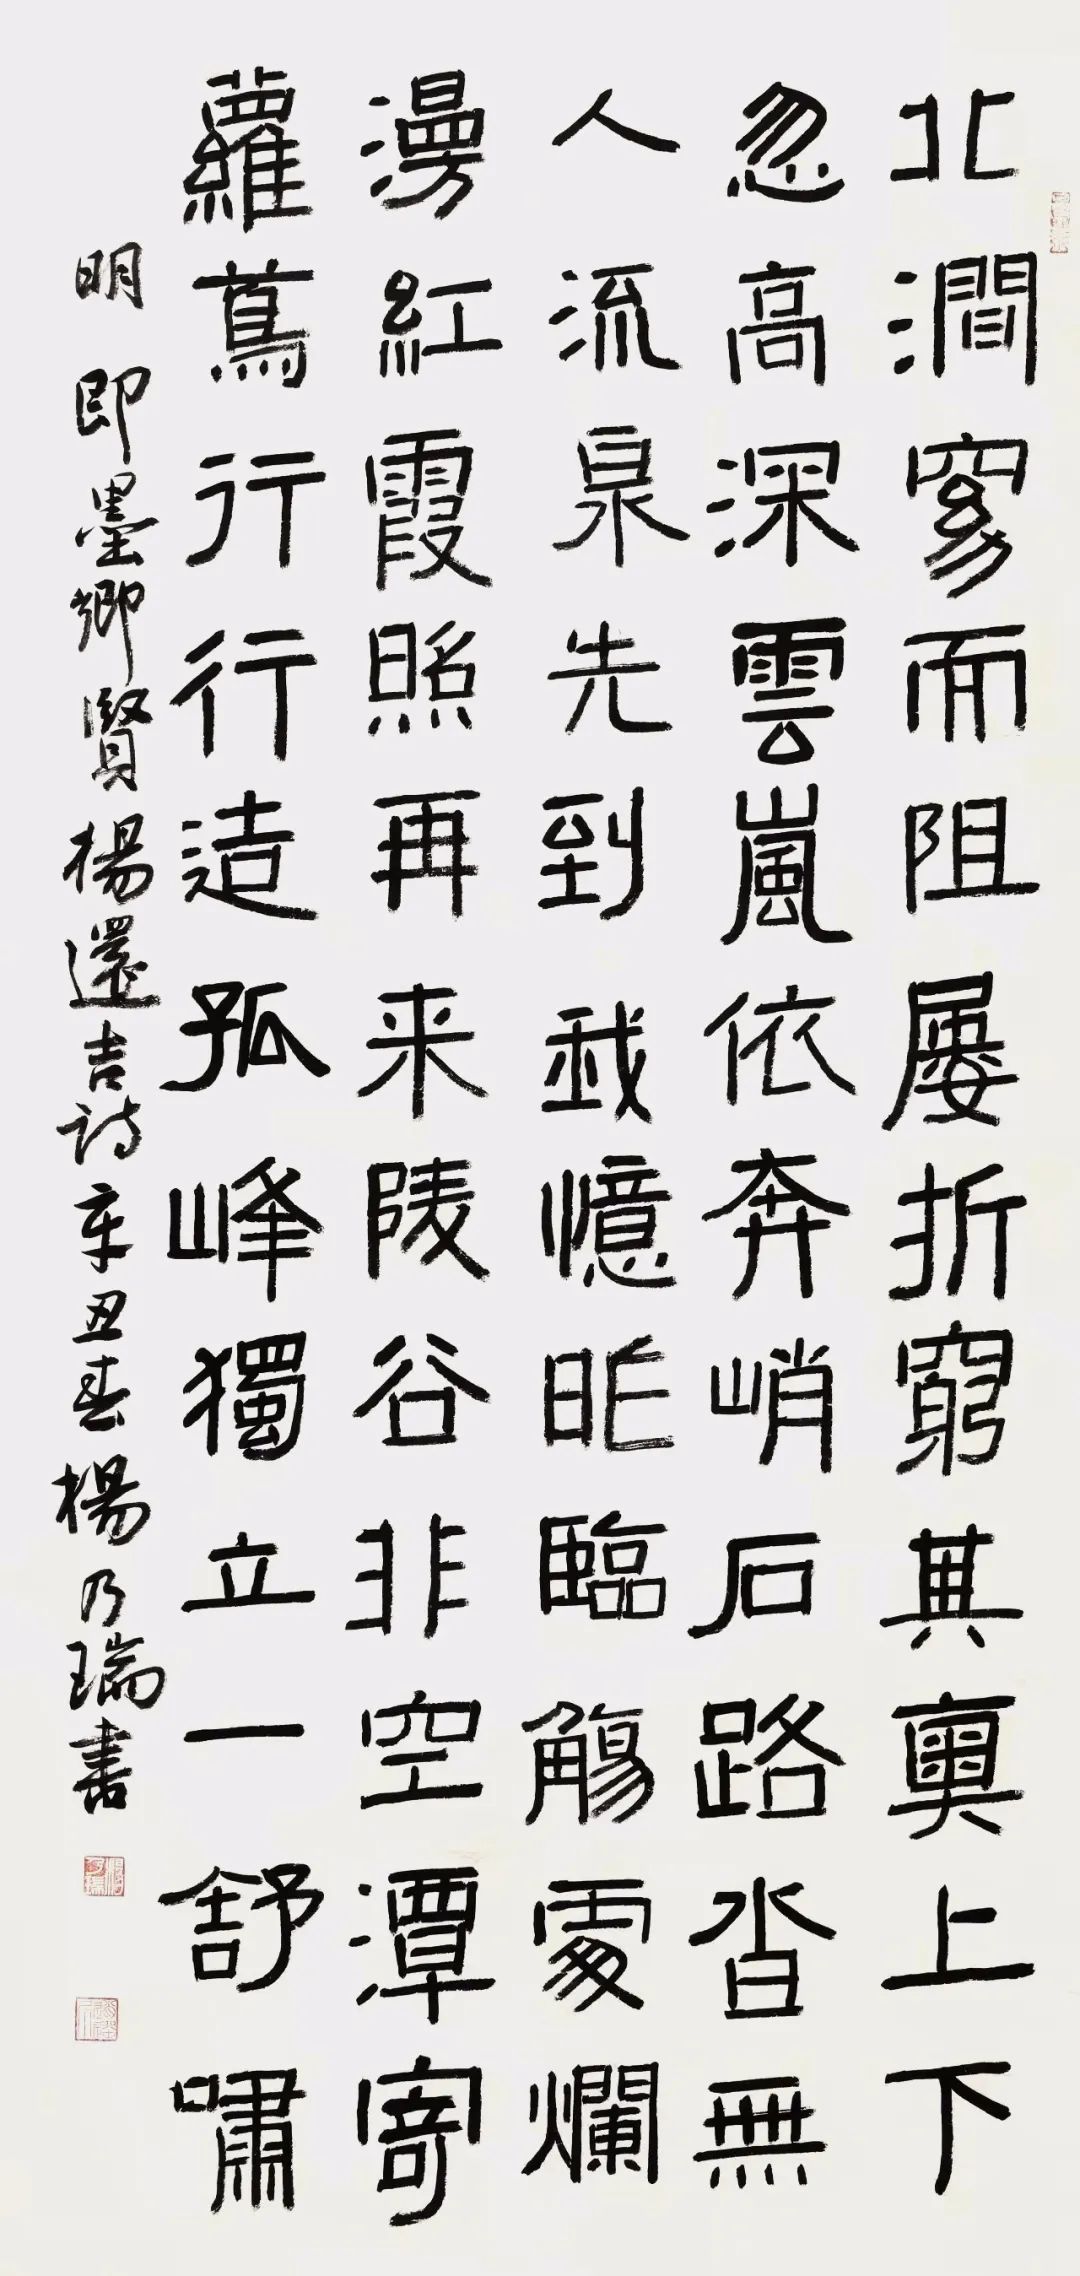 北澗窈而阻屢折窮其奧上下
忽高深雲嵐依奔峭石路沓無
人流泉先到我憶昨臨觴處爛
漫紅霞照再来陵谷非空潭寄
蘿蔦行行造孤峰獨立一舒嘯
明 即墨鄉賢楊還吉詩辛丑春楊乃瑞書